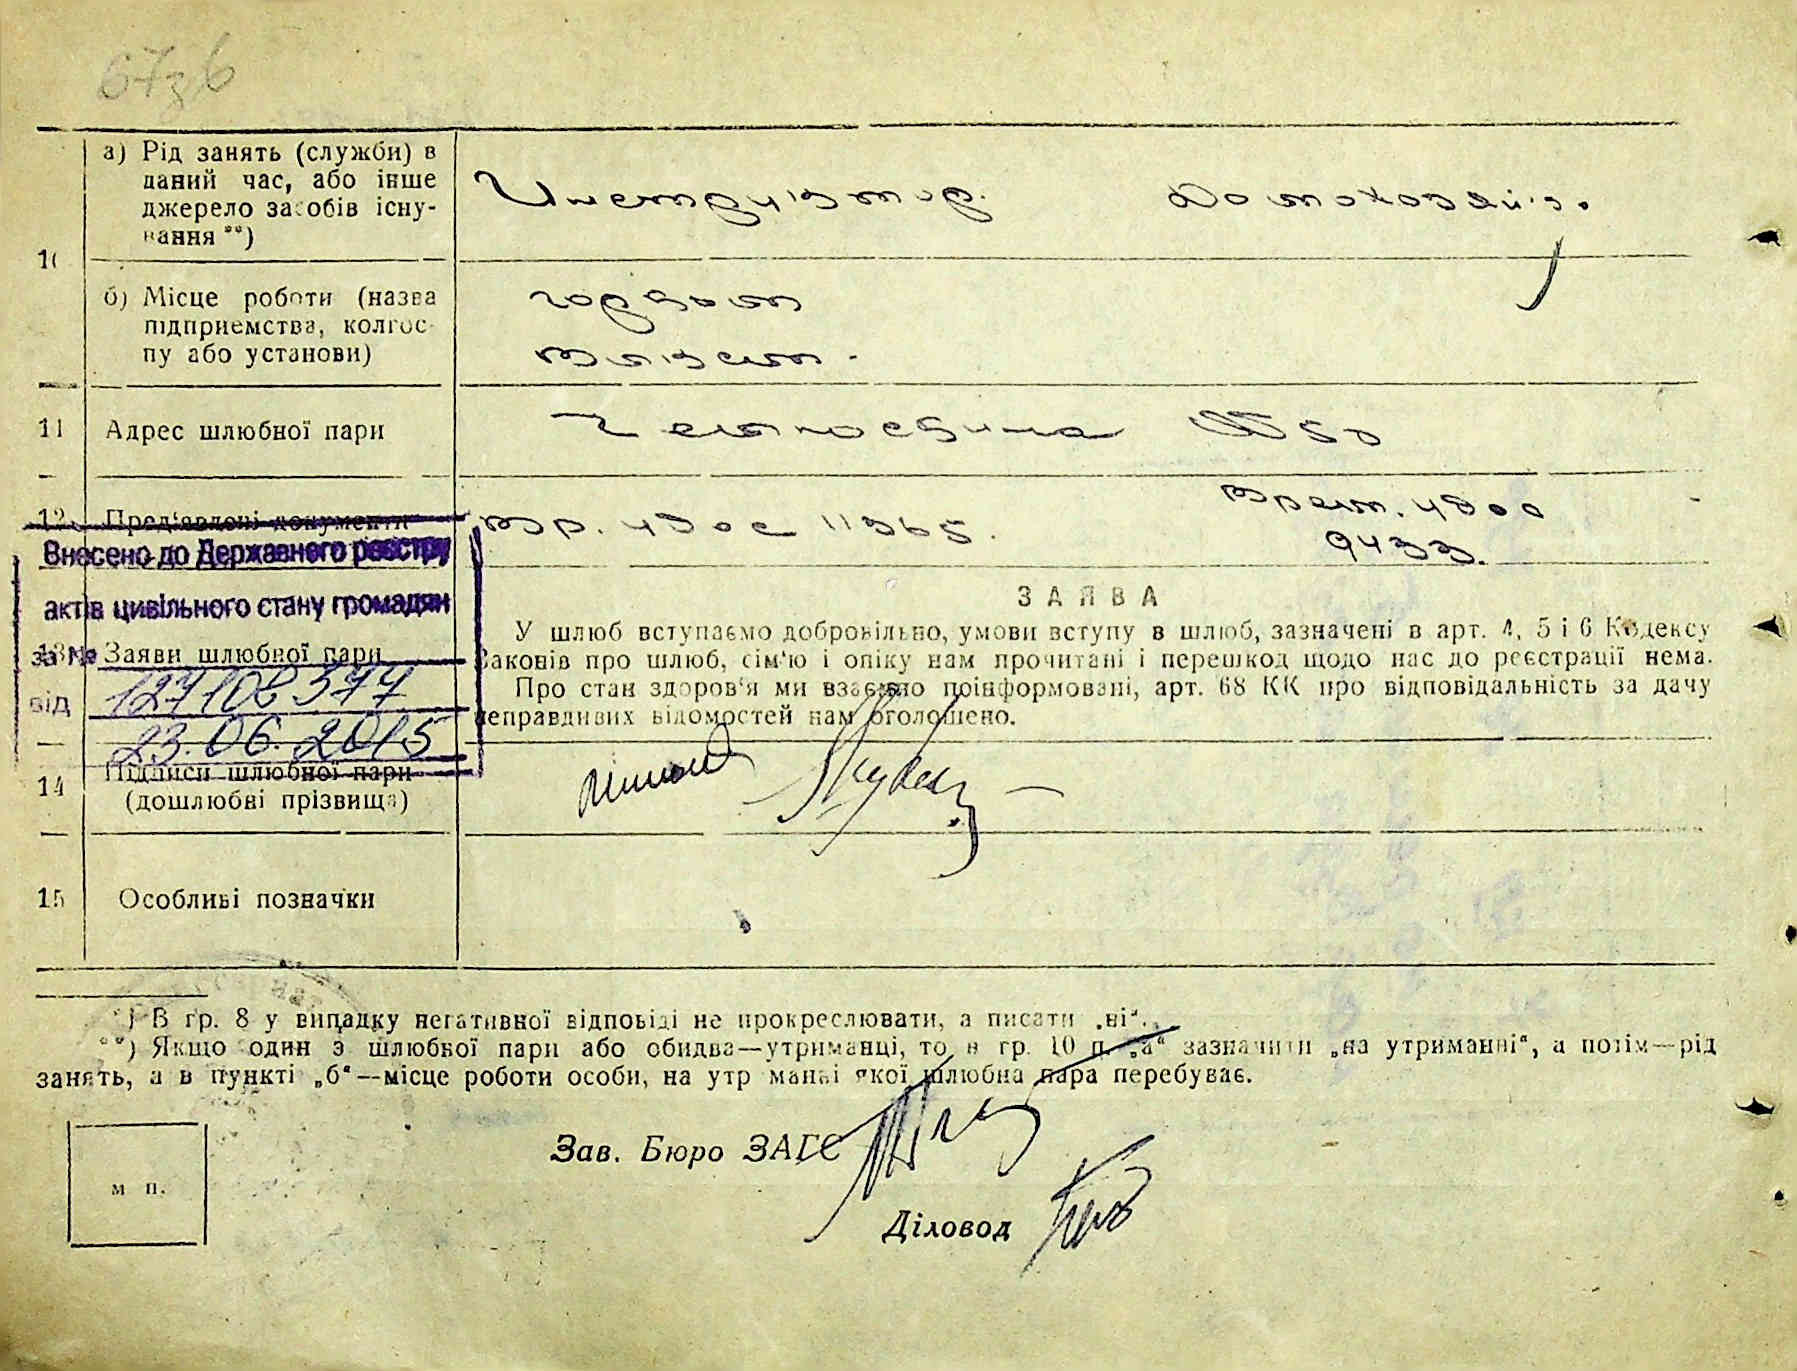 67зб
а) Рід занять (служби) в
даний час, або інше
джерело засобів існу-
вання **)
Инструктор. Домохозяй.
10
б) Місце роботи (назва
підприємства, колгос-
пу або установи)
11 Адрес шлюбної пари
12 Пред'явлені документи
Вр. удос 11365. Врем. удос
9433.
Внесено до Державного реєстру
актів цивільного стану громадян
за №
127108377
від
23.06.2015
13 Заяви шлюбної пари
ЗАЯВА
У шлюб вступаємо добровільно, умови вступу в шлюб, зазначені в арт. 4, 5 і 6 Кодексу
Законів про шлюб, сім'ю і опіку нам прочитані і перешкод щодо нас до реєстрації нема.
Про стан здоров'я ми взаємно поінформовані, арт. 68 КК про відповідальність за дачу
неправдивих відомостей нам оголошено.
14 Підписи шлюбної пари
(дошлюбні прізвища)
15 Особливі позначки
*) В гр. 8 у випадку негативної відповіді не прокреслювати, а писати „ні".
**) Якщо один з шлюбної пари або обидва—утриманці, то в гр. 10 п. „а" зазначити „на утриманні", а потім—рід
занять, а в пункті „б"—місце роботи особи, на утриманні якої шлюбна пара перебуває.
Зав. Бюро ЗАГС
м п.
Діловод